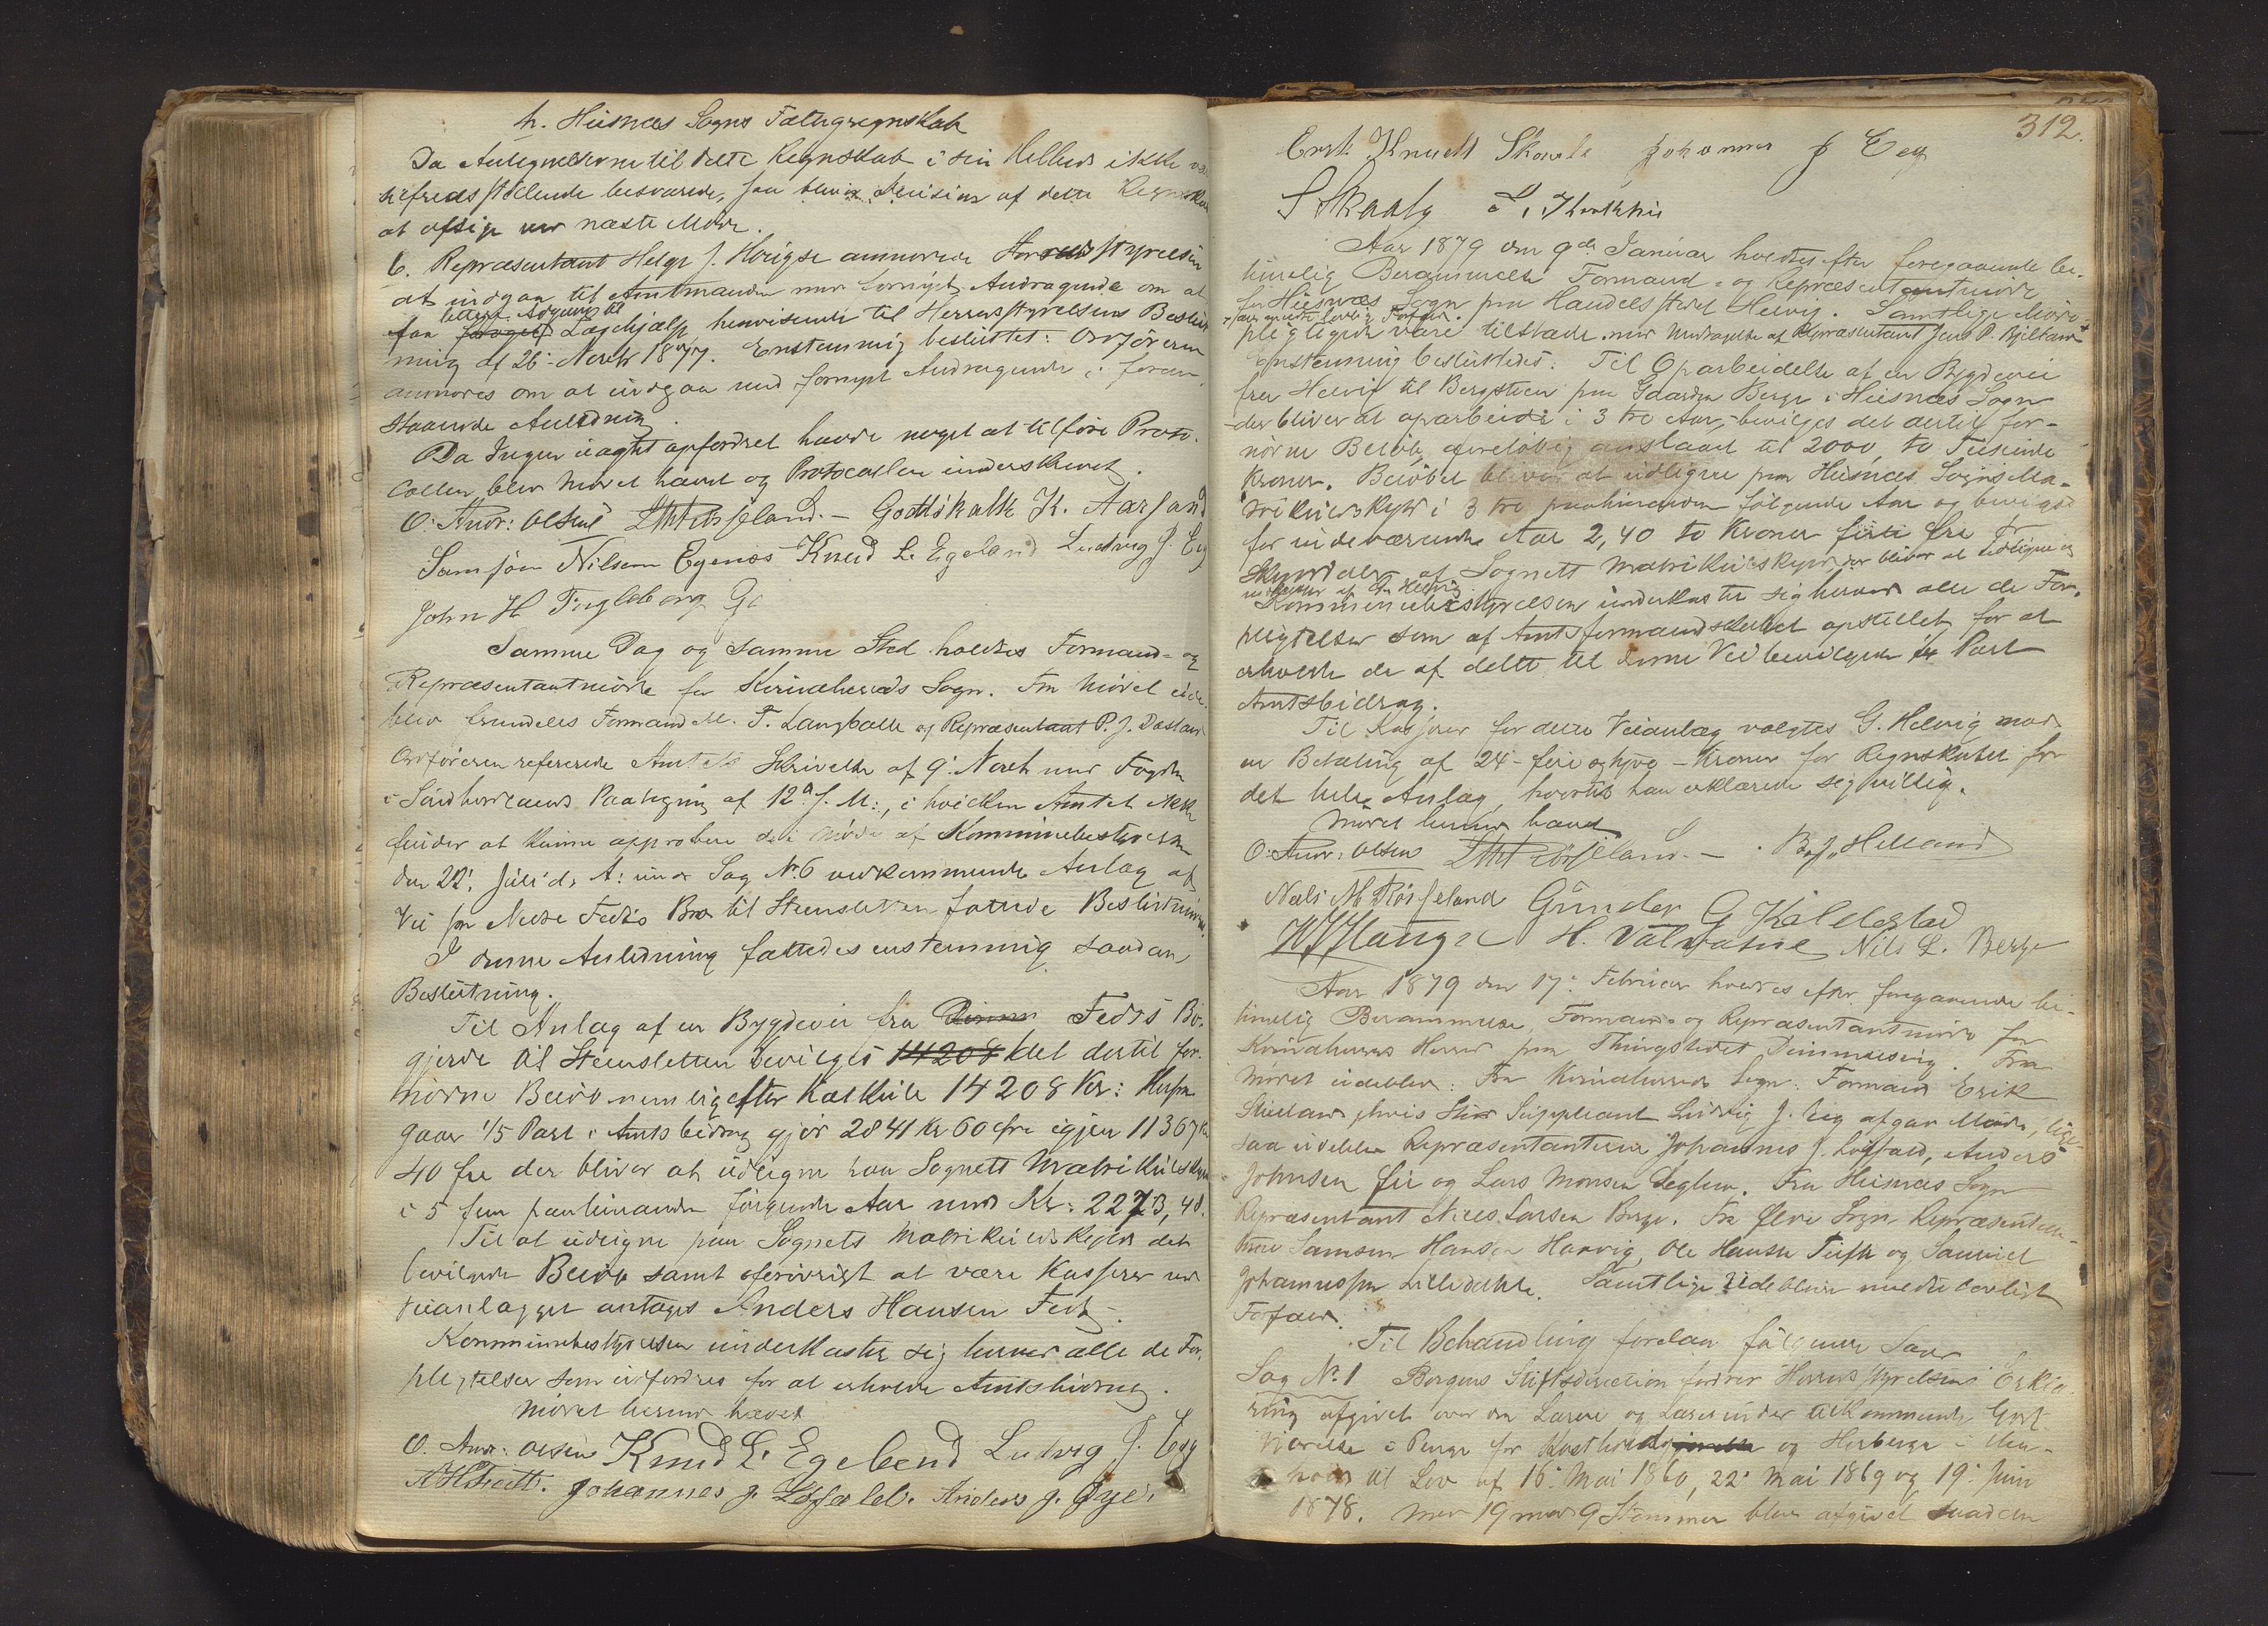 h. Husnæs Sogns Fattigregnskab
Da Antegnelserne til dette Regnskab i sin Helhed ikke va
tilfredsstillende besvarede, saa bliver Decision af dette Regnskab
at afsige ved næste Møde.
6. Repræsentant Helge J. Høvigse anmodede Herredsstyrelsen
at indgaa til Amtmanden med fornyet Andragende om at
lettere Adgang til
faa Lægehjælp henvisende til Herredsstyrelsens Beslut
ning af 26 Novbr 1877. Enstemmig besluttet: Ordføreren
anmodes om at indgaa med fornyet Andragende i foran
staaende Anledning.
Da Ingen uagtet opfordret havde noget at tilføre Proto-
collen blev Mødet hævet og Protocollen underskrevet.
O. Andr: Olsen Røsseland. – Godtskalk K. Aarsand
Samson Nilsen Egenæs Knud L. Egeland Ludvig J. Eeg
John H
Samme Dag og samme Sted holdtes Formand- og
Repræsentantmøde for Kvindherreds Sogn. Fra Mødet ude
blev fremdeles Formand M. T. Langballe og Repræsentant P. J.
Ordføreren refererede Amtets Skrivelse af 9. Novbr med Fogden
i Søndhordlands Paategning af 12 s. M:, i hvilken Amtet ikke
finder at kunne approbere det i Møde af Kommunebestyrelsen
den 22. Juli d. A: under Sag No. 6 vedkommende Anlæg af
Vei fra Nedre Fedts Bro til Steensletten fattede Beslutning.
I denne Anledning fattedes enstemmig saadan
Beslutning.
Til Anlæg af en Bygdevei fra Fedts Bø-
gjerde til Steensletten bevilges 14208 det dertil for-
nødne Beløb nemlig efter Kalkule 14208 Kr: Herfra
gaar 1/5 Part i Amtsbidrag gjør 2841 Kr 60 øre igjen 11367 Kr
40 øre der bliver at udligne paa Sognets Matrikulskyld
i 5 fem paahinanden følgende Aar med Kr: 2273,48.
Til at udligne paa Sognets Matrikulskyld det
bevilgede Beløb samt forøvrigt at være Kasserer ved
Veianlægget antages Anders Hansen Fedt.
Kommunebestyrelsen underkaster sig herved alle de For-
pligtelser som udfordres for at erholde Amtsbidrag.
Mødet herved hævet
O. Andr: Olsen Knud L. Egeland Ludvig J. Eeg
A H Fedt. Johannes J. Løfald. Anders J. Øye.
312.
Erik Knudt Skaale Johannes J Eeg
S Skaaly
Aar 1879 den 9de Januar holdtes efter foregaaende be-
timelig Berammelse Formand- og Repræsentantmøde
for Husnæs Sogn paa Handelsstedet Helvig. Samtlige Møde-
pligtige vare tilstæde med Undtagelse af Repræsentant Jens P. Bjelland
Enstemmig besluttedes: Til Oparbeidelse af en Bygdevei
fra Helvig til Bergsteen paa Gaarden Berge i Husnæs Sogn
der bliver at oparbeide i 3 tre Aar, bevilges det dertil for-
nødne Beløb, foreløbig anslaaet til 2000, to Tusinde
Kroner. Beløbet bliver at udligne paa Husnæs Sogns Ma-
trikulskyld i 3 tre paahinanden følgende Aar og bevilges
for indeværende Aar 2,40 to Kroner firti Øre pr
Skylddaler af Sognets Matrikulskyld der bliver at udligne og
G. Helvig
Kommunebestyrelsen underkaster sig herved alle de For-
pligtelser som af Amtsformandskabet opstillet for at
erholde de af dette til denne Vei bevilgede Part
Amtsbidrag.
Til Kasserer for dette Veianlæg valgtes G. Helvig mod
en Betaling af 24 – fire og tyve – Kroner for Regnskabet for
det hele Anlæg, hvortil han erklærede sig villig.
Mødet herved hævet
O. Andr: Olsen Røsseland. – B. J. Helland
Nels M. Røsseland Gunder G Kaldestad
H. Valvatne Nils L. Berge
Aar 1879 den 17. Februar holdtes efter foregaaende be-
timelig Berammelse, Formand- og Repræsentantmøde for
Kvindherreds Herred paa Thingstedet Dimmelsvig. Fra
Mødet udeblev: Fra Kvindherreds Sogn: Formand Erik
hvis Suppleant Ludvig J. Eeg afgav Møde, lige-
saa udeblev Repræsentanterne Johannes J. Løfald, Anders
Johnsen Øie og Lars Monsen Teglen. Fra Husnæs Sogn
Repræsentant Niels Larsen Berge. Fra Ølve Sogn Repræsentan-
terne Samson Hansen Harvig, Ole Hansen Tufte og Samuel
Johannessen Lilledahle. Samtlige Udeblevne meldte lovligt
Forfald.
Til Behandling forelaa følgende Sager
Sag No. 1 Bergens Stiftsdirection fordrer Herredsstyrelsens Erklæ-
ring afgivet over den Lærere og Lærerinder tilkommende Godt
gjørelse i Penge for Kosthold og Herberge i Hen-
hold til Lov af 16. Mai 1860, 22. Mai 1869 og 19. Juni
1878. Med 19 mod 9 Stemmer blev afgivet saadan